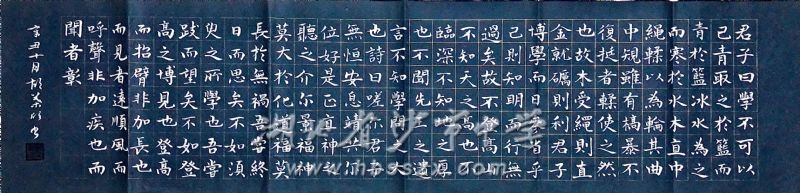 君子曰學不可以
已青取之於籃而
青於籃冰水為之
而寒於水木直中
繩輮以為輪其曲
中規雖有槁暴不
復挺者輮使之然
也故木受繩則直
金就礪則利君子
博學而日參省乎
己則知明而行無
過矣故不登高山
不知天之高也不
臨深不知地之厚
也不聞先王之遺
言不知學問之大
也詩曰嗟爾君子
無恒安息靖共爾
位好是正直神之
聽之介爾景福神
莫大於化道福莫
長於無禍吾嘗終
日而思矣不如須
臾之所學也吾嘗
跂而望矣不如登
高之博見也登高
而招臂非加長也
而見者遠順風而
呼聲非加疾也而
聞者彰
辛丑十月